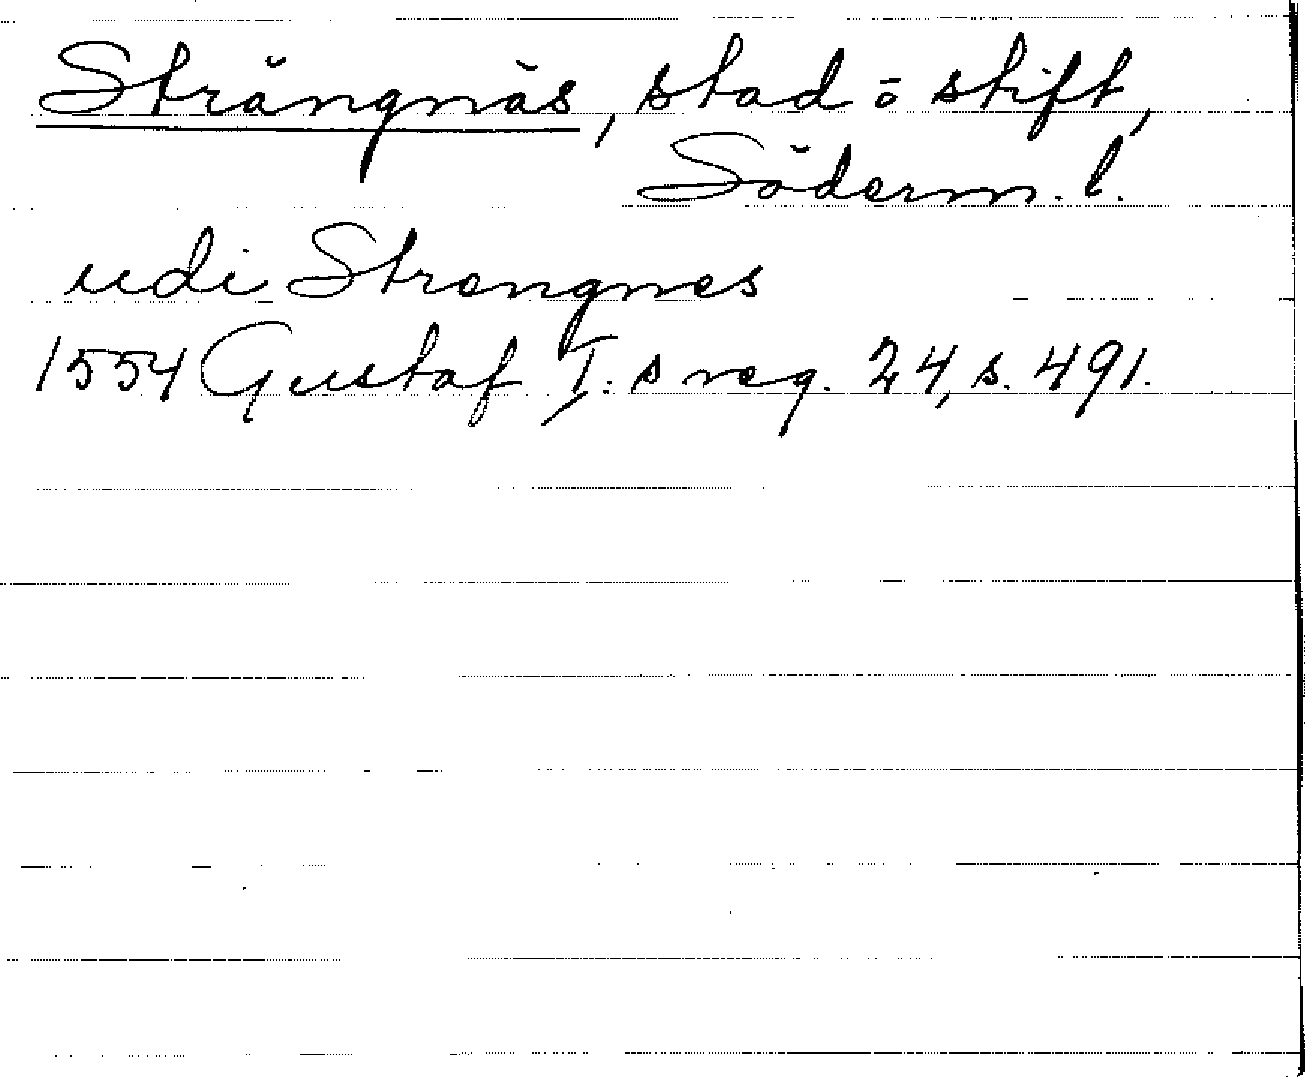 Strängnäs, stad o stift,
Söderm. l.
udi Strengnes
1554 Gustaf I:s reg. 24, s. 491.